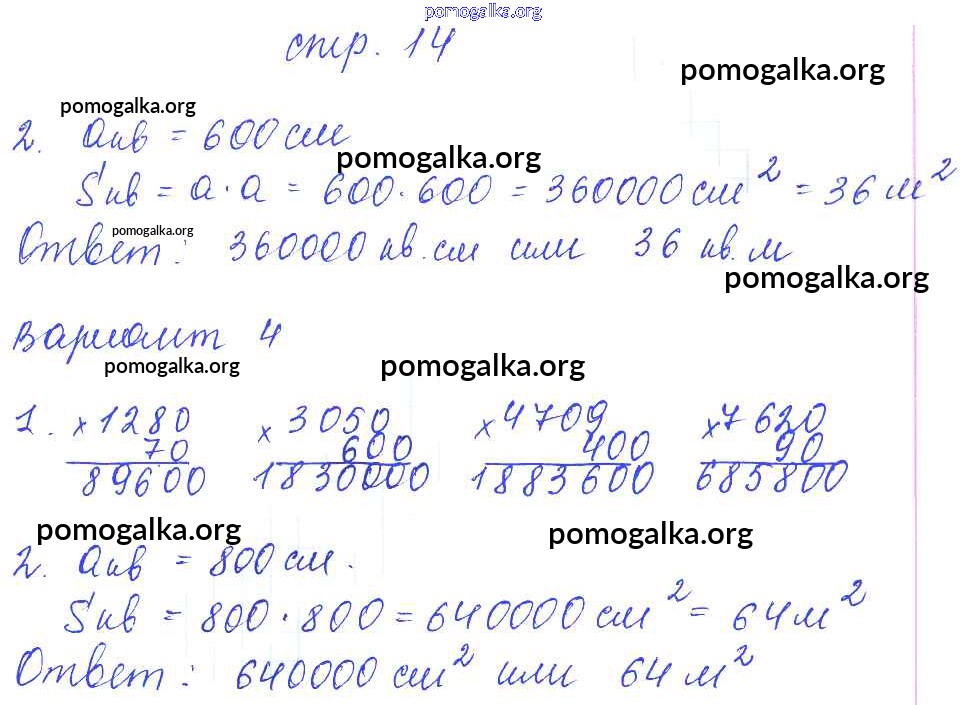 pomogalka.org
стр. 14
pomogalka.org
pomogalka.org
2. aкв = 600 см
pomogalka.org
Sкв = a · a = 600 · 600 = 360000 см² = 36 м²
pomogalka.org
Ответ: 360000 кв. см или 36 кв. м
pomogalka.org
Вариант 4
pomogalka.org pomogalka.org
1. ×1280 ×3050 ×4709 ×7620
70 600 400 90
89600 1830000 1883600 685800
pomogalka.org pomogalka.org
2. aкв = 800 см.
Sкв = 800 · 800 = 640000 см² = 64 м²
Ответ: 640000 см² или 64 м²